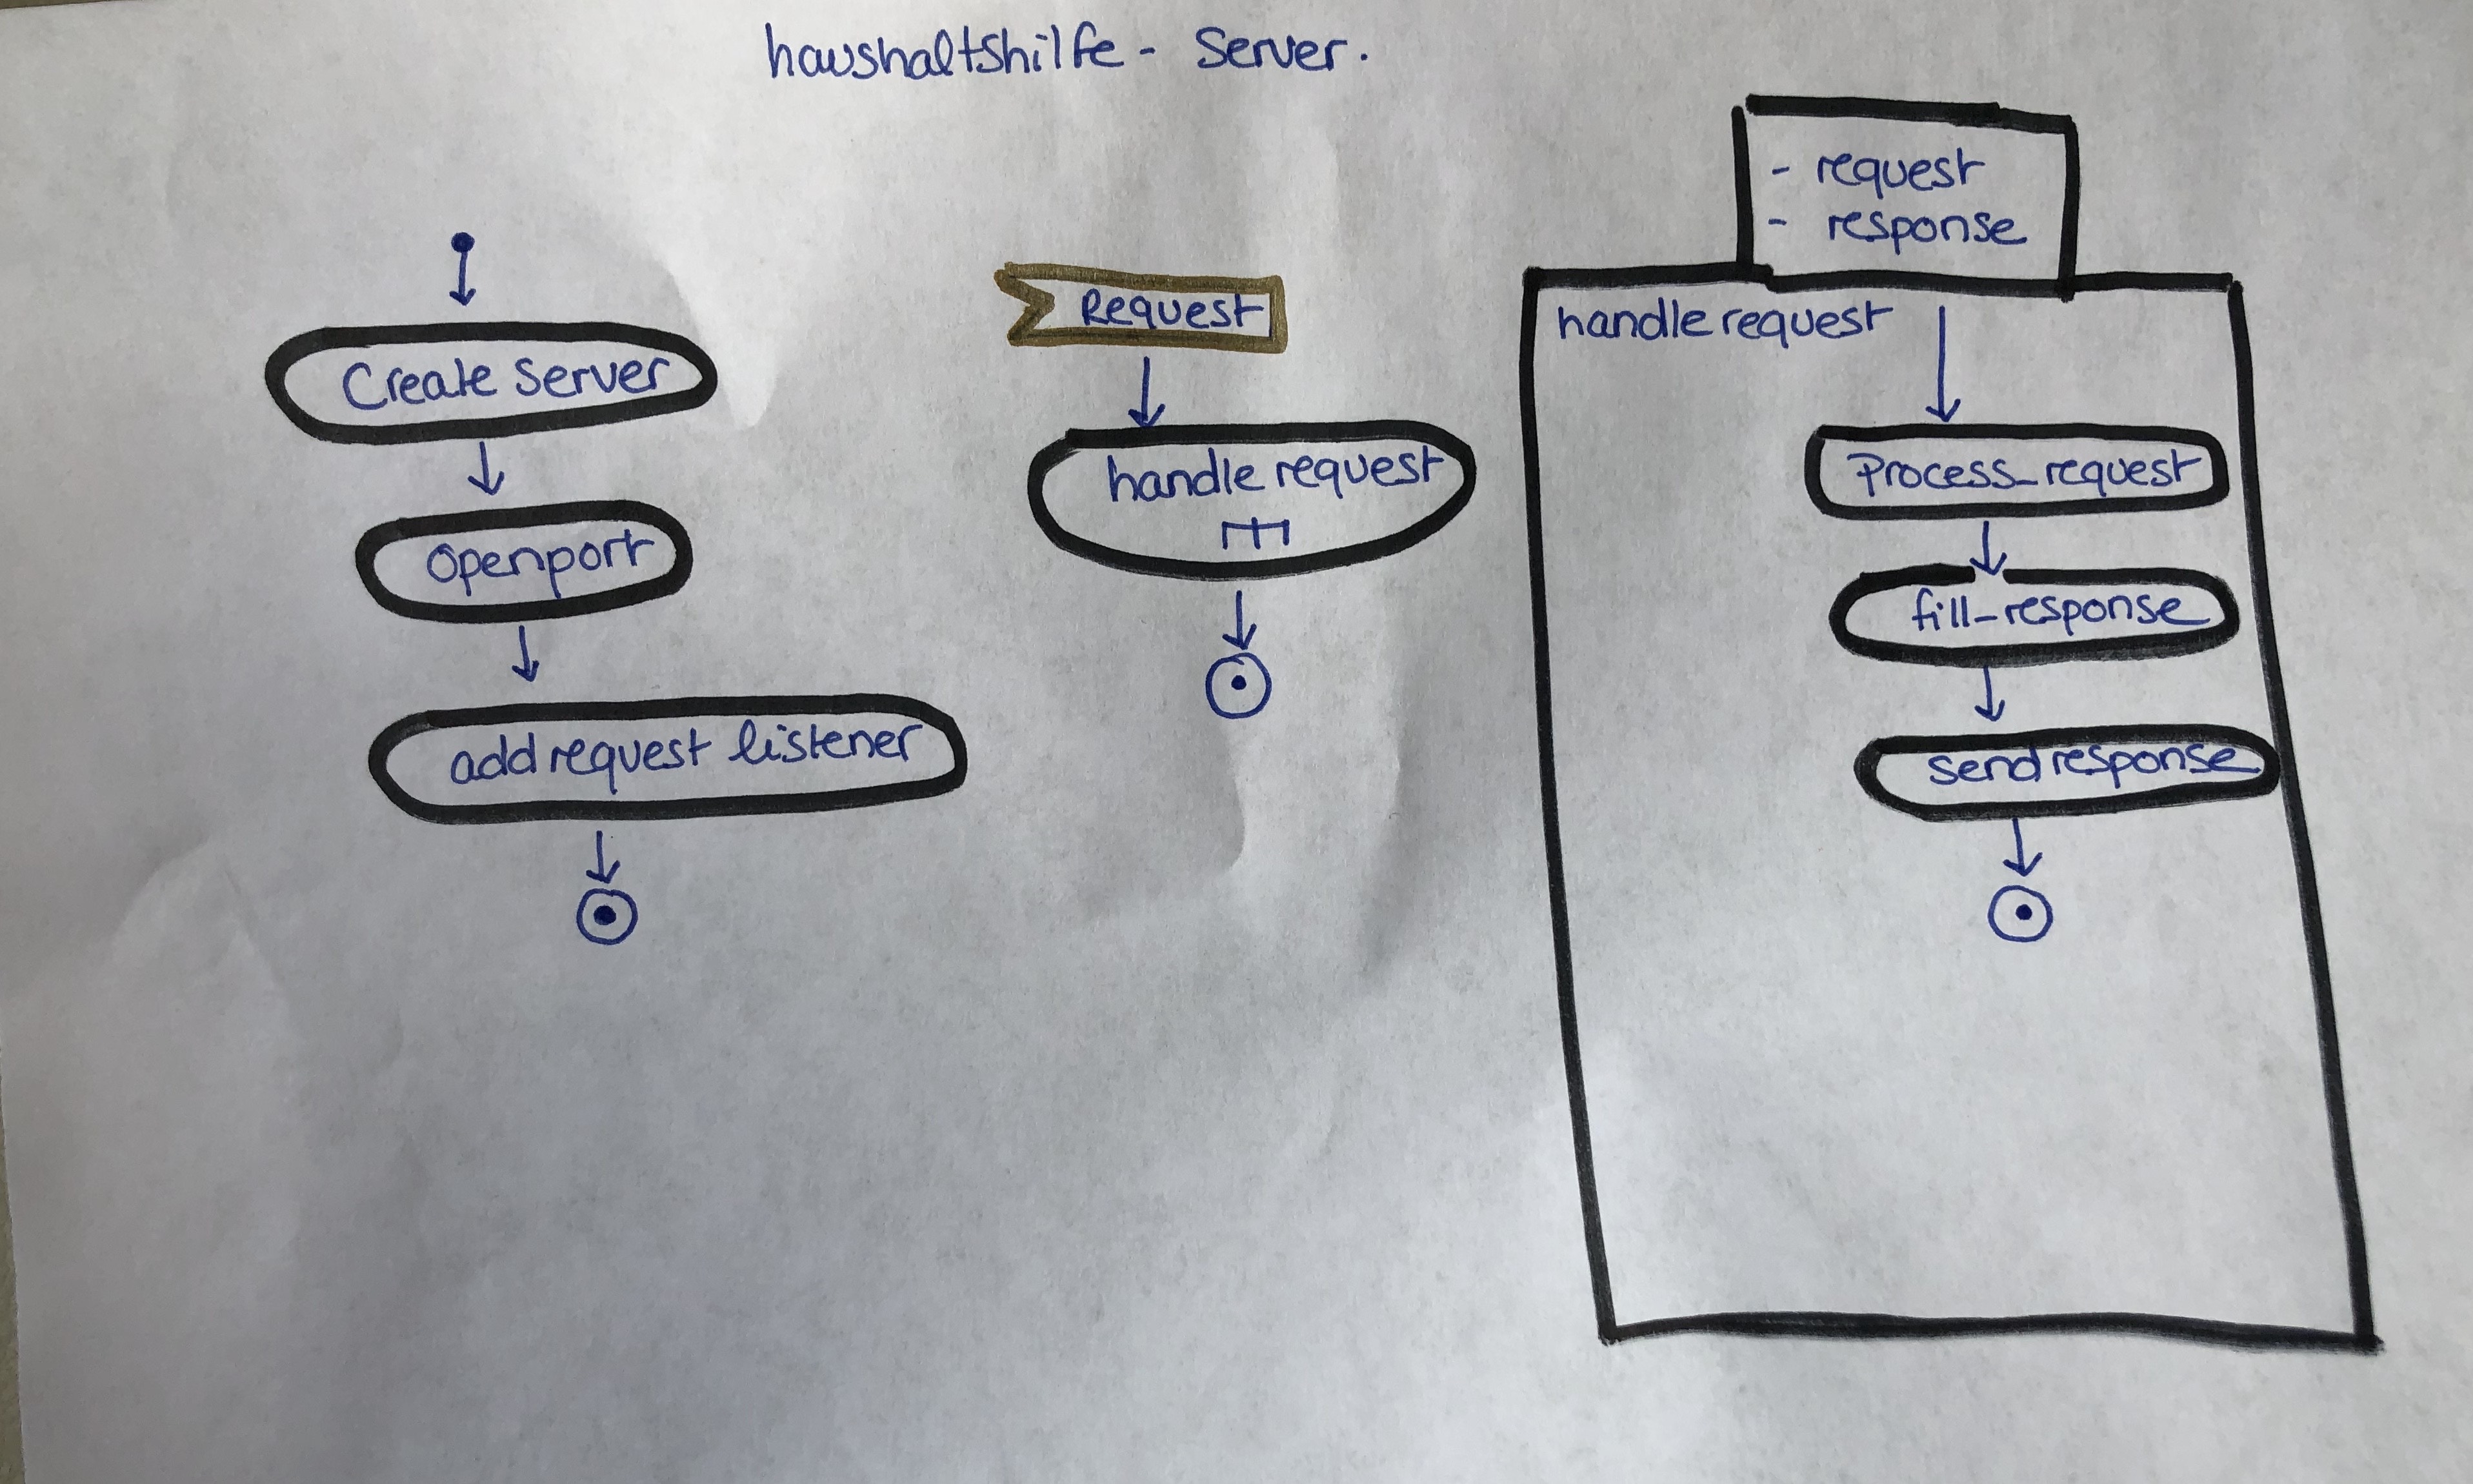 haushaltshilfe - Server.
Create Server
Openport
add request listener
Request
handle request
- request
- response
handle request
Process_request
fill_response
send response